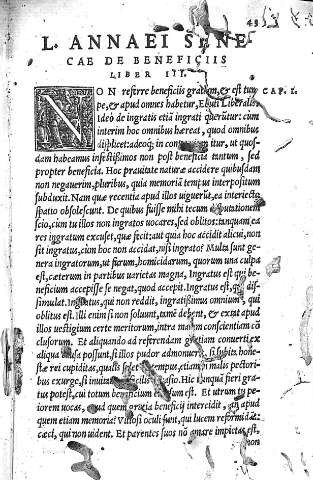 L. ANNAEI SENE
CAE DE BENEFICIIS
LIBER III.
NON referre beneficiis gratiam, & est tur CAP. I.
pe, & apud omnes habetur, Ebuti Liberalis
Ideo de ingratis etiã ingrati querũtur: cum
interim hoc omnibus hæreat, quod omnibus
displicet: adeoq; in itur, ut quos-
dam habeamus infestissimos non post beneficia tantum, sed
propter beneficia. Hoc prauitate naturæ accidere quibusdam
non negauerim, pluribus, quia memoriã tempus interpositum
subduxit. Nam quæ recentia apud illos uiguerũt, ea interiecto
spatio obsolescunt. De quibus fuisse mihi tecum disputationem
scio, cum tu illos non ingratos uocares, sed oblitos: tanquam ea
res ingratum excuset, quæ fecit: aut quia hoc accidit alicui, non
sit ingratus, cum hoc non accidat, nisi ingrato? Multa sunt ge-
nera ingratorum, ut furum, homicidarum, quorum una culpa
est, cæterum in partibus uarietas magna, Ingratus est qui be-
neficium accepisse se negat, quod accepit. Ingratus est, qui dis-
simulat. Ingratus, qui non reddit, ingratissimus omnium, qui
oblitus est. Illi enim si non soluunt, tamẽ debent, & extat apud
illos uestigium certe meritorum, intra malam conscientiam cõ
clusorum. Et aliquando ad referendam gratiam conuerti ex
aliqua causa possunt, si illos pudor admonuerit, si subita hone-
stæ rei cupiditas, qualis solet tempus, etiam in malis pectori-
bus exurge, si inuita facilis occasio. Hic nunquã fieri gratus
potest, cui totum beneficium elapsum est. Et utrum tu pe-
iorem uocas, apud quem gratia beneficij intercidit, an apud
quem etiam memoria? Vitiosi oculi sunt, qui lucem reformidãt
cæci, qui non uident. Et parentes suos nõ amare impietas est,
non